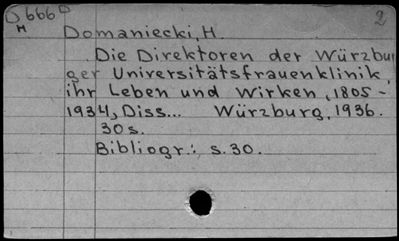 D666 D 2
H
Domaniecki, H.
Die Direktoren der Würzbur
ger Universitätsfrauenklinik,
ihr Leben und Wirken, 1805-
1934, Diss... Würzburg, 1936.
30 s.
Bibliogr.: s. 30.